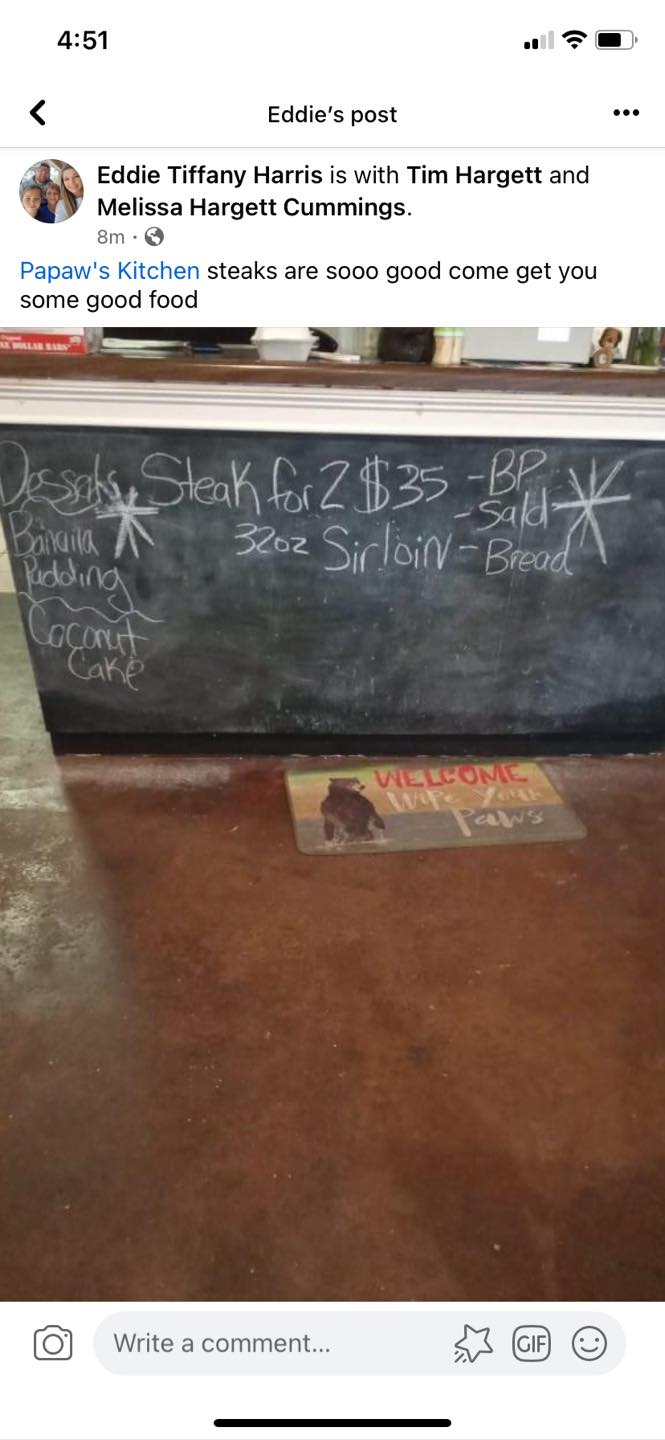 4:51
Eddie's post
Eddie Tiffany Harris is with Tim Hargett and
Melissa Hargett Cummings.
8m ·
Papaw's Kitchen steaks are sooo good come get you
some good food
NE DOLLAR BARS
Steak for 2 $35 -BP
-Sald
32oz Sirloin - Bread
Dessats
Banana
Pudding
Coconut
Cake
WELCOME
Wipe Your
Paws
Write a comment...
GIF